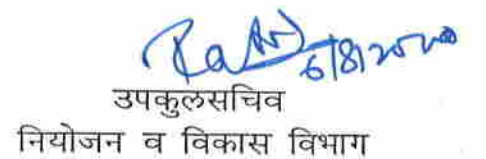 6/8/2020
उपकुलसचिव
नियोजन व विकास विभाग